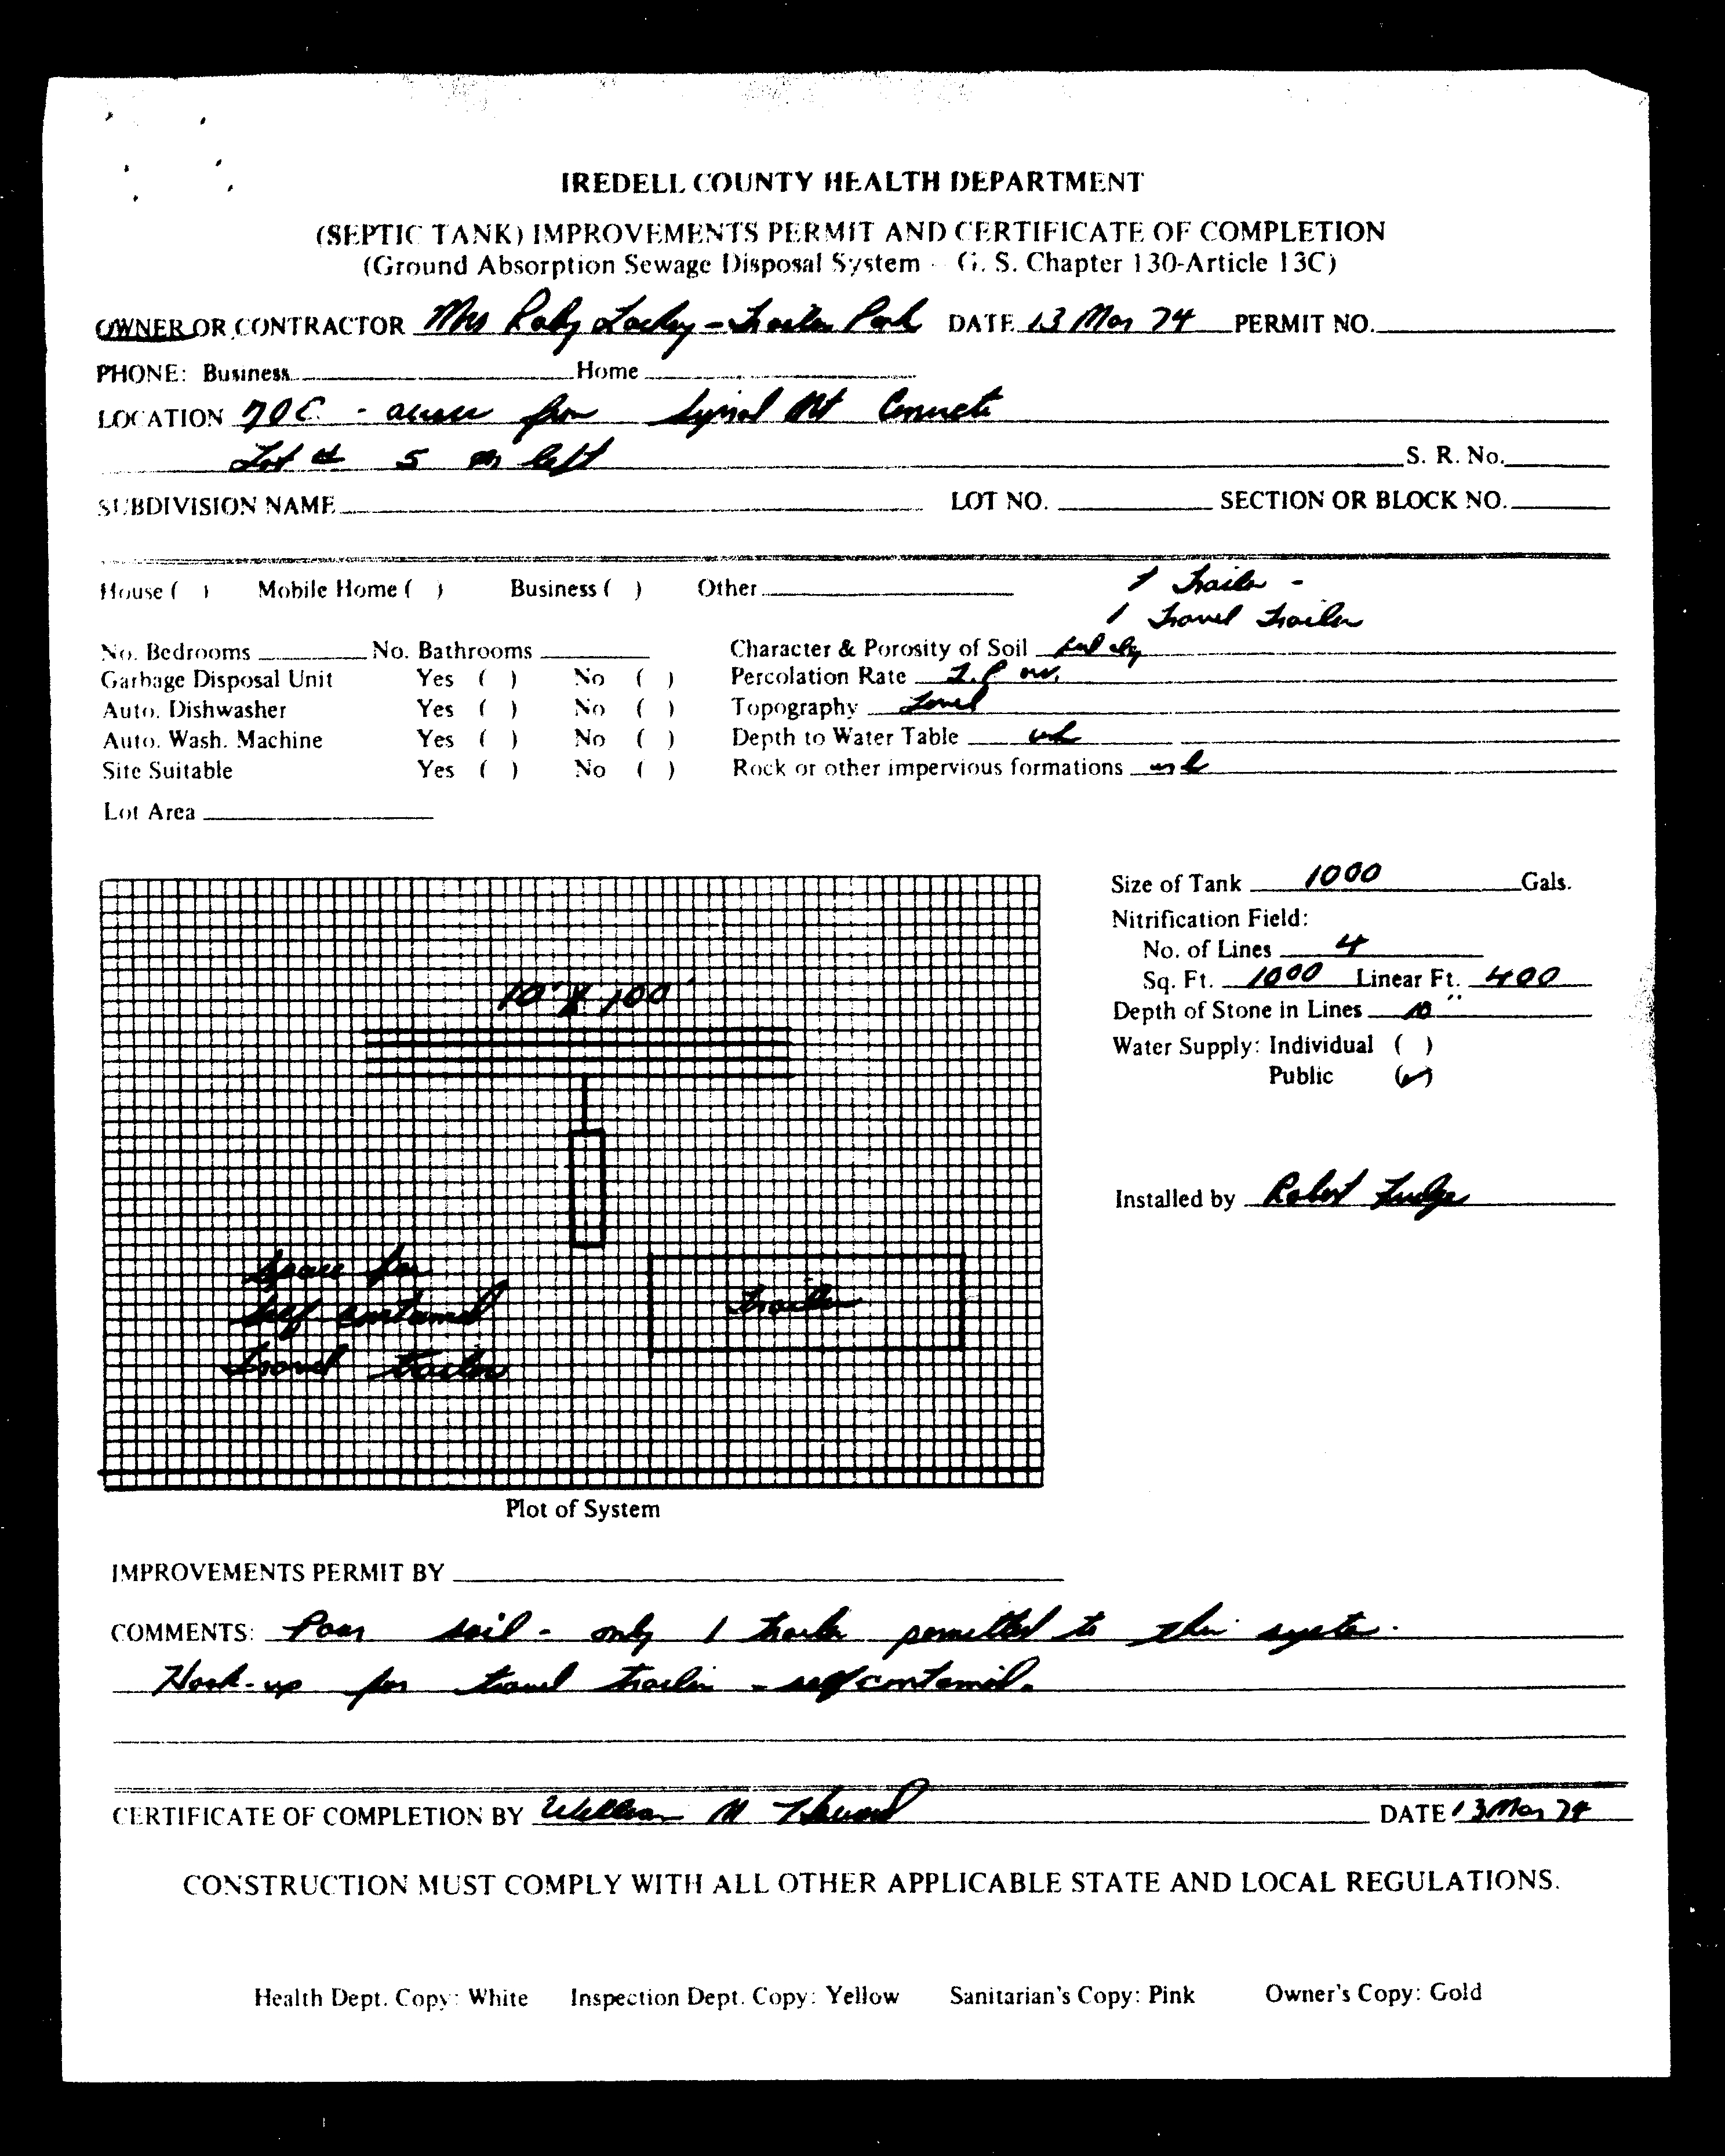 IREDELL COUNTY HEALTH DEPARTMENT
(SEPTIC TANK) IMPROVEMENTS PERMIT AND CERTIFICATE OF COMPLETION
(Ground Absorption Sewage Disposal System - G. S. Chapter 130-Article 13C)
OWNER OR CONTRACTOR Mrs Lackey - Trailer Park DATE 13 Mar 74 PERMIT NO.
PHONE: Business Home
LOCATION 70E - across from Concrete
Lot # 5 on left S. R. No.
SUBDIVISION NAME LOT NO. SECTION OR BLOCK NO.
House ( ) Mobile Home ( ) Business ( ) Other 1 Trailer -
1 Travel Trailer
No. Bedrooms No. Bathrooms Character & Porosity of Soil
Garbage Disposal Unit Yes ( ) No ( ) Percolation Rate
Auto. Dishwasher Yes ( ) No ( ) Topography Level
Auto. Wash. Machine Yes ( ) No ( ) Depth to Water Table unk
Site Suitable Yes ( ) No ( ) Rock or other impervious formations unk
Lot Area
Size of Tank 1000 Gals.
Nitrification Field:
No. of Lines 4
Sq. Ft. 1000 Linear Ft. 400
Depth of Stone in Lines 10"
Water Supply: Individual ( )
Public (✓)
Installed by Robert Fudge
10' X 100'
Space for
self contained
travel trailer
trailer
Plot of System
IMPROVEMENTS PERMIT BY
COMMENTS: Poor soil - only 1 trailer permitted to this system.
Hook-up for travel trailer - self contained.
CERTIFICATE OF COMPLETION BY William M DATE 13 Mar 74
CONSTRUCTION MUST COMPLY WITH ALL OTHER APPLICABLE STATE AND LOCAL REGULATIONS.
Health Dept. Copy: White Inspection Dept. Copy: Yellow Sanitarian's Copy: Pink Owner's Copy: Gold